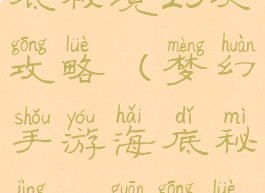 底秘境23关
gōng lüè mèng huàn
攻略（梦幻
shǒu yóu hǎi dǐ mì
手游海底秘
jìng guān gōng lüè